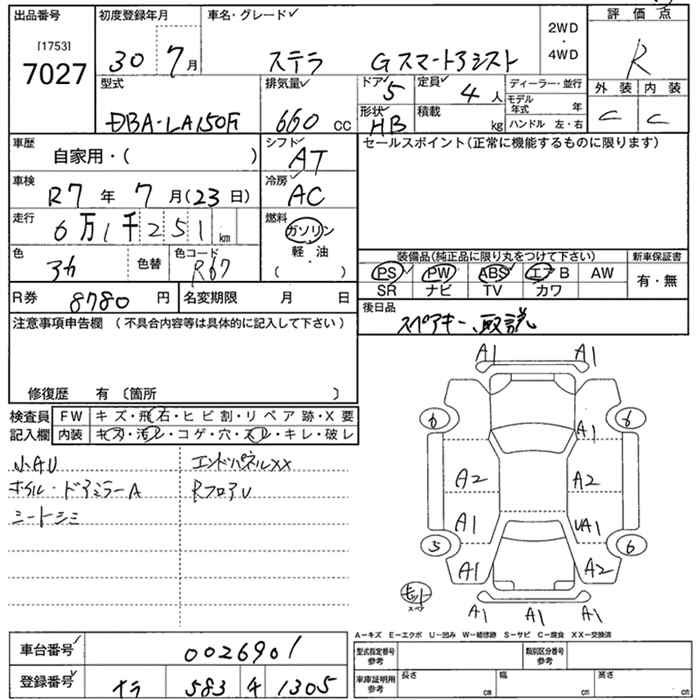 出品番号 初度登録年月 車名・グレード 2WD・4WD 評価点
[1753]
7027 30 7月 ステラ Gスマートアシスト R
型式 排気量 ドア 5 定員 4人 ディーラー・並行 外装 内装
DBA-LA150F 660cc 形状 HB 積載 kg モデル年式 年 C C
ハンドル 左・右
車歴 自家用・( ) シフト AT セールスポイント(正常に機能するものに限ります)
車検 R7年7月(23日) 冷房 AC
走行 6万1千251km 燃料 ガソリン
軽・油
( )
色 アカ 色替 色コード R67 装備品(純正品に限り丸をつけて下さい) 新車保証書
PS PW ABS エアB AW 有・無
SR ナビ TV カワ
R券 8780円 名変期限 月 日 後日品
スペアキー、取説
注意事項申告欄 (不具合内容等は具体的に記入して下さい)
修復歴 有 〔箇所 〕
検査員記入欄 FW キズ・飛石・ヒビ割・リペア跡・X要
内装 キズ・汚レ・コゲ・穴・スレ・キレ・破レ
小AU エンドパネルXX
ホイル・ドアミラーA RフロアU
シートシミ
A1 A1
6 6
A1
A2 A2
A1 UA1
5 6
A1 A2
セット
スペア
A1 A1 A1
A-キズ E-エクボ U-凹み W-補修跡 S-サビ C-腐食 XX-交換済
車台番号 0026901 型式指定番号 参考 類別区分番号 参考
登録番号 ナラ 583 イ 1305 車庫証明用 参考 長さ cm 幅 cm 高さ cm